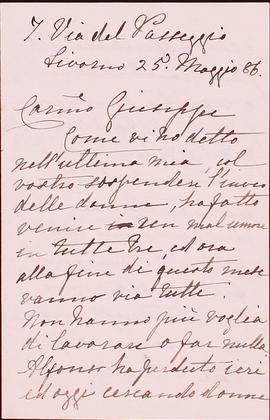 7. Via del Passeggio
Livorno 25. Maggio 86.
Carmo Giuseppe
Come vi ho detto
nell'ultima mia, col
vostro sospendere l'invio
delle donne, ha fatto
venire un mal umore
in tutte tre, ed ora
alla fine di questo mese
vanno via tutti.
Non hanno più voglia
di lavorare o far nulla
Alfonso ha perduto ieri
ed oggi cercando donne